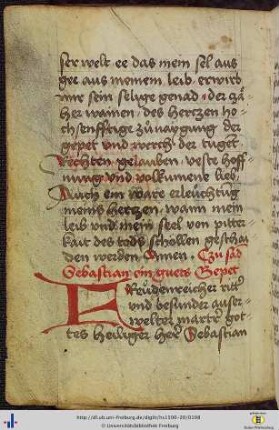 ser welt ee das mein sel aus
gee aus meinem leib erwirb
mir sein selige genad · der zä
her wainen / des hertzen ho
chsenfftige zunaygung der
gepet und werch der tuget
Rechten gelauben / veste hoff
nung und volkumene lieb
Auch ein ware erleuchtug
meins hertzen / wann mein
leib und mein seel von pitter
kait des tods schollen geschai
den werden Amen · Czu sād
Sebastian ein guets Gepet
Freudenreicher ritt'
und besunder auser
welter martr' got
tes heiliger her' Sebastian
© Universitätsbibliothek Freiburg